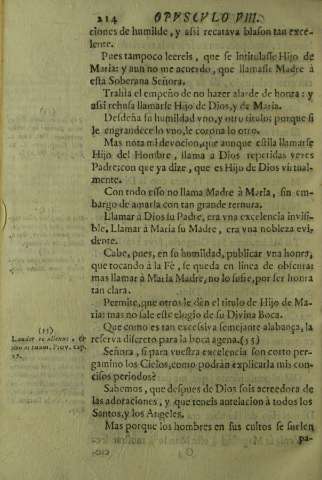 214 OPVSCVLO VIII.
ciones de humilde, y assi recatava blason tan exce-
lente.
Pues tampoco leereis, que se intitulasse Hijo de
Maria: y aun no me acuerdo, que llamasse Madre à
esta Soberana Señora.
Trahía el empeño de no hazer alarde de honra: y
assi rehusa llamarse Hijo de Dios, y de Maria.
Desdeña su humildad vno, y otro titulo; porque si
le engrandece lo vno, le corona lo otro.
Mas nota mi devocion, que aunque estila llamarse
Hijo del Hombre, llama a Dios repetidas vezes
Padre: con que ya dize, que es Hijo de Dios virtual-
mente.
Con todo esso no llama Madre à Maria, sin em-
bargo de amarla con tan grande ternura.
Llamar à Dios su Padre, era vna excelencia invisi-
ble, Llamar à Maria su Madre, era vna nobleza evi-
dente.
Cabe, pues, en su humildad, publicar vna honra,
que tocando à la Fè, se queda en linea de obscura;
mas llamar à Maria Madre, no lo sufre, por ser honra
tan clara.
Permite, que otros le dèn el titulo de Hijo de Ma-
ria: mas no sale este elogio de su Divina Boca.
Que como es tan excessiva semejante alabança, la
reserva discreto para la boca agena. (55)
(55)
Laudet te alienus, &
non os tuum. Prov. cap.
27.
Señora, si para vuestra excelencia son corto per-
gamino los Cielos, como podràn explicarla mis con-
cisos periodos?
Sabemos, que despues de Dios sois acreedora de
las adoraciones, y que teneis antelacion à todos los
Santos, y los Angeles.
Mas porque los hombres en sus cultos se suelen
pa-